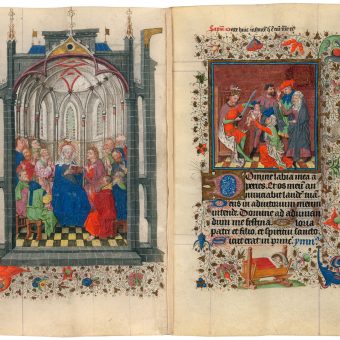 Domine labia mea a
peries. Et os meum an
nunciabit laudem
Deus in adiutorium meum
intende. Domine ad adiuuan
dum me festina. Gloria
patri et filio, et spiritui sancto
Sicut erat in princ.